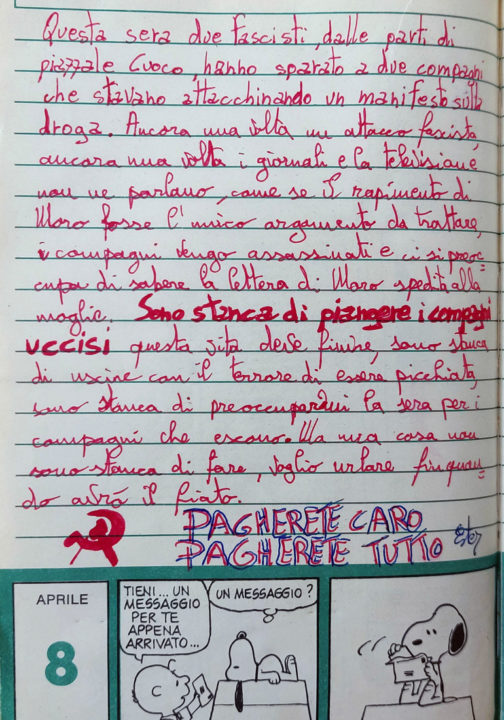 Questa sera due fascisti, dalle parti di
piazzale Cuoco, hanno sparato a due compagni
che stavano attacchinando un manifesto sulla
droga. Ancora una volta un attacco fascista,
ancora una volta i giornali e la televisione
non ne parlano, come se il rapimento di
Moro fosse l'unico argomento da trattare,
i compagni vengo assassinati e ci si preoc=
cupa di sapere la lettera di Moro spedita alla
moglie. Sono stanca di piangere i compagni
uccisi questa vita deve finire, sono stanca
di uscire con il terrore di essere picchiata,
sono stanca di preoccuparmi la sera per i
compagni che escono. Ma una cosa non
sono stanca di fare, voglio urlare finquan=
do avrò il fiato.
PAGHERETE CARO
PAGHERETE TUTTO
APRILE
8
TIENI... UN
MESSAGGIO
PER TE
APPENA
ARRIVATO...
UN MESSAGGIO?